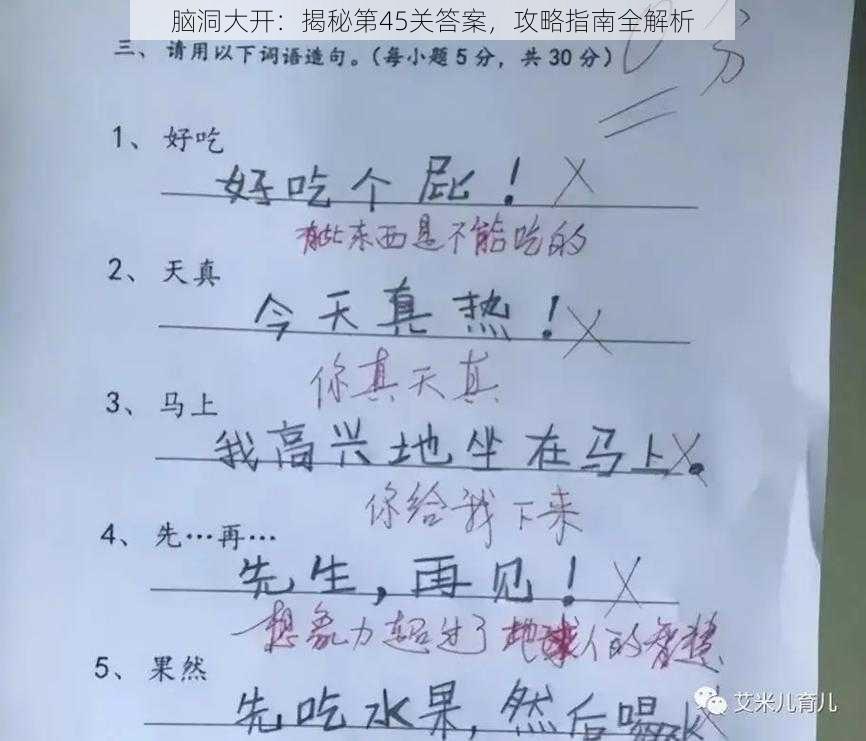 脑洞大开：揭秘第45关答案，攻略指南全解析
三、请用以下词语造句。（每小题5分，共30分）
0分
1、好吃
好吃个屁！
有些东西是不能吃的
2、天真
今天真热！
你真天真
3、马上
我高兴地坐在马上。
你给我下来
4、先…再…
先生，再见！
想象力超过了地球人的智慧
5、果然
先吃水果，然后喝水
艾米儿育儿